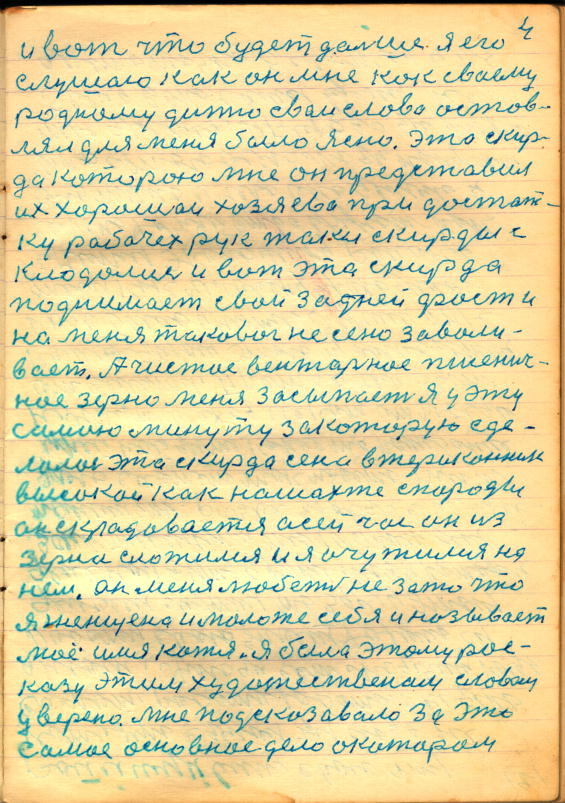 4
и вот что будет дальше. Я его
слушаю как он мне как своему
родному дитю сваи слова остов-
лял для меня было ясно. Это скир-
да которою мне он представил
их хорошаи хозяева при достат-
ку рабачех рук таки скирды с
клодолись и вот эта скирда
поднимает свой задней фрост и
на меня таковог не сено завали-
вает. А чистое вентарное пшенич-
ное зерно меня засыпает я у эту
самою минуту закоторую сде-
лалась эта скирда сена в териконник
высокой как на шахте с породы
он складовается а сей час он из
зерна сложился и я очутился на
нем. он меня любеть не зато что
я женщена и моложе себя и называет
моё имя катя. я была этому рос-
казу этим художественам словам
уверена. мне подсказавало за это
самое основное дело о котором